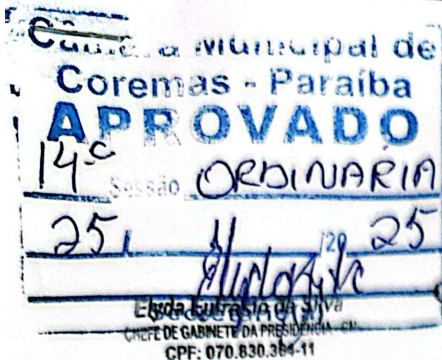 Câmara Municipal de
Coremas - Paraíba
APROVADO
14ª Sessão ORDINARIA
25, /20 25
Silva
CHEFE DE GABINETE DA PRESIDÊNCIA
CPF: 070.830.